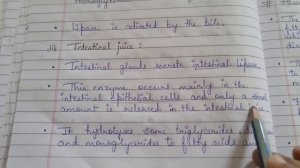 monoglycerides
• Lipase is activated by the bile.
iii) Intestinal juice :
• Intestinal glands secrete intestinal lipase.
• This enzyme occurs mainly in the
intestinal epithelial cells and only a small
amount is released in the intestinal
• It hydrolyses some triglycerides
and monoglycerides to fatty acids and